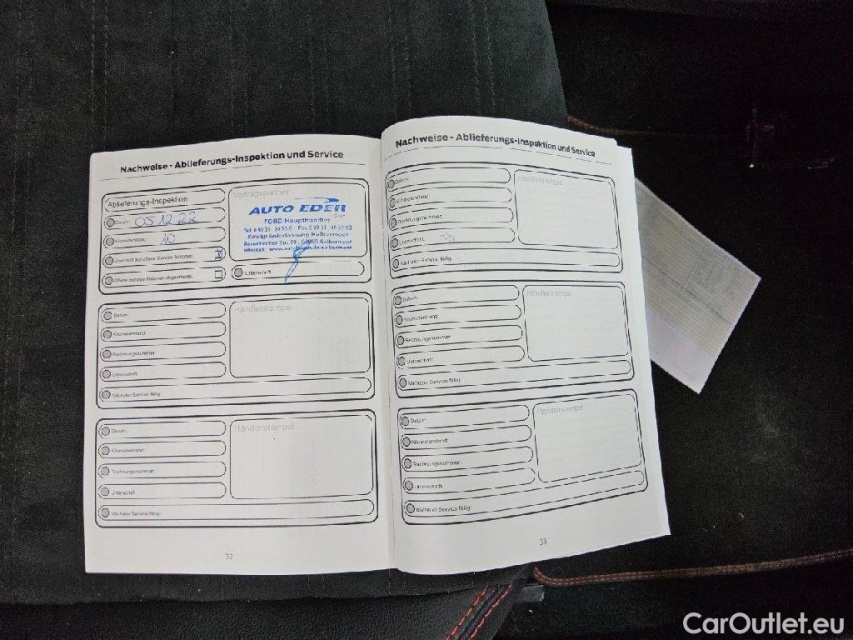 Nachweise - Ablieferungs-Inspektion und Service
Ablieferungs-Inspektion
Datum 05.12.22
Kilometerstand 10
Unterschrift
AUTO EDER
FORD Haupthändler
Datum
Kilometerstand
Rechnungsnummer
Unterschrift
Nächster Service fällig
Händlerstempel
Datum
Kilometerstand
Rechnungsnummer
Unterschrift
Nächster Service fällig
Händlerstempel
32
Nachweise - Ablieferungs-Inspektion und Service
Datum
Kilometerstand
Rechnungsnummer
Unterschrift
Nächster Service fällig
Händlerstempel
Datum
Kilometerstand
Rechnungsnummer
Unterschrift
Nächster Service fällig
Händlerstempel
Datum
Kilometerstand
Rechnungsnummer
Unterschrift
Nächster Service fällig
Händlerstempel
33
CarOutlet.eu